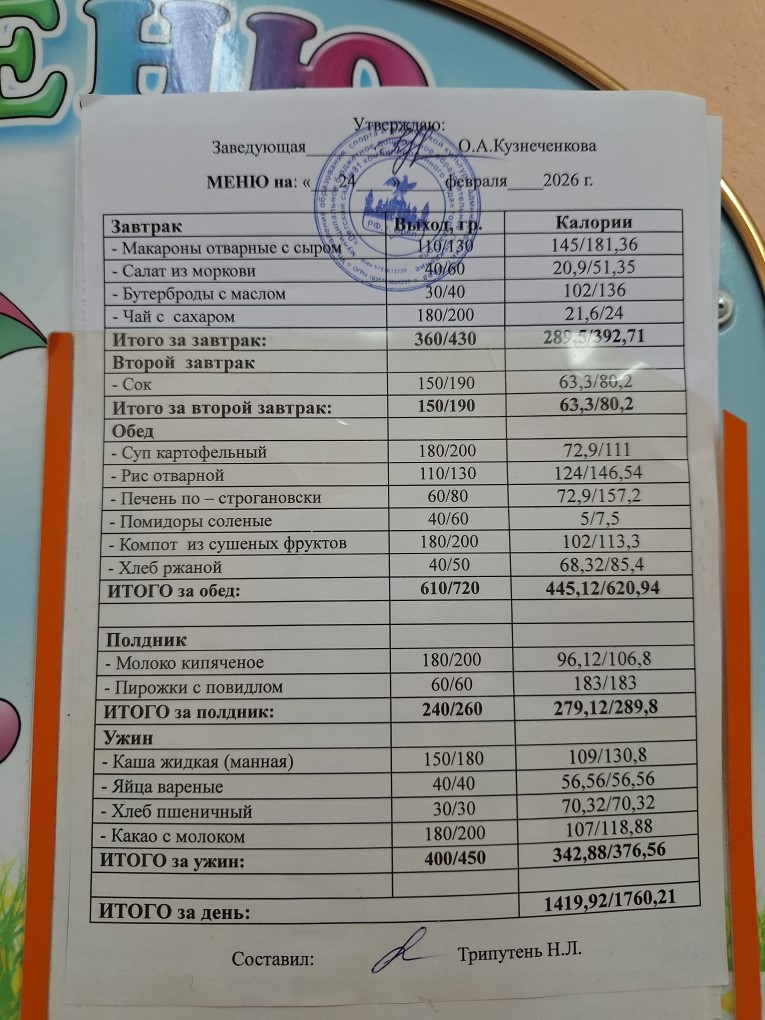 ЕНЮ
Утверждаю:
Заведующая____ О.А.Кузнеченкова
МЕНЮ на: «__24__» __февраля____2026 г.
Завтрак Выход, гр. Калории
- Макароны отварные с сыром 110/130 145/181,36
- Салат из моркови 40/60 20,9/51,35
- Бутерброды с маслом 30/40 102/136
- Чай с сахаром 180/200 21,6/24
Итого за завтрак: 360/430 289,5/392,71
Второй завтрак
- Сок 150/190 63,3/80,2
Итого за второй завтрак: 150/190 63,3/80,2
Обед
- Суп картофельный 180/200 72,9/111
- Рис отварной 110/130 124/146,54
- Печень по – строгановски 60/80 72,9/157,2
- Помидоры соленые 40/60 5/7,5
- Компот из сушеных фруктов 180/200 102/113,3
- Хлеб ржаной 40/50 68,32/85,4
ИТОГО за обед: 610/720 445,12/620,94
Полдник
- Молоко кипяченое 180/200 96,12/106,8
- Пирожки с повидлом 60/60 183/183
ИТОГО за полдник: 240/260 279,12/289,8
Ужин
- Каша жидкая (манная) 150/180 109/130,8
- Яйца вареные 40/40 56,56/56,56
- Хлеб пшеничный 30/30 70,32/70,32
- Какао с молоком 180/200 107/118,88
ИТОГО за ужин: 400/450 342,88/376,56
ИТОГО за день: 1419,92/1760,21
Составил: Трипутень Н.Л.